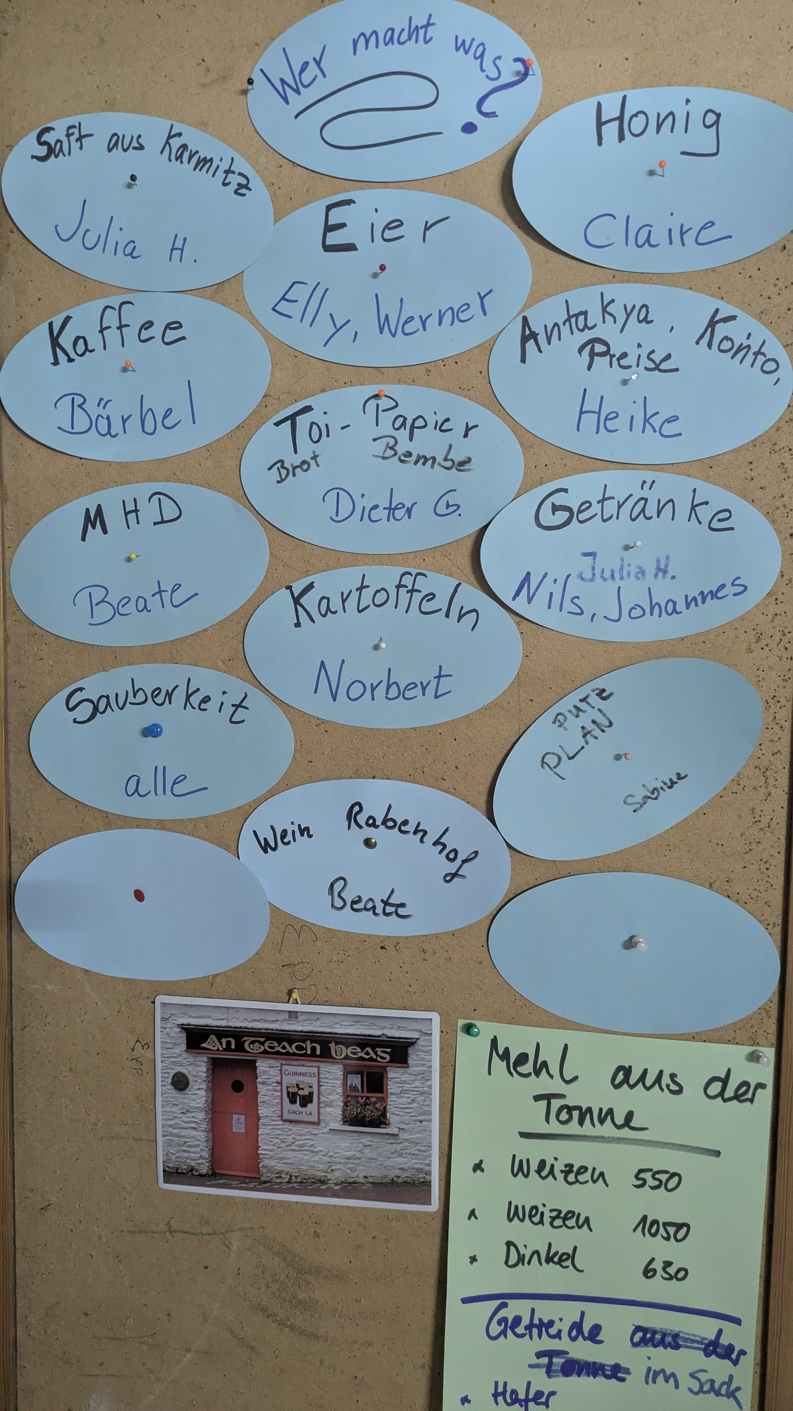 Wer macht was?
Saft aus Karmitz
Julia H.
Honig
Claire
Eier
Elly, Werner
Kaffee
Bärbel
Antakya, Konto,
Preise
Heike
Toi-Papier
Brot Bembe
Dieter G.
MHD
Beate
Getränke
Julia H.
Nils, Johannes
Kartoffeln
Norbert
Sauberkeit
alle
PUTZ
PLAN
Sabine
Wein Rabenhof
Beate
An Teach Beag
GUINNESS
Mehl aus der
Tonne
* Weizen 550
* Weizen 1050
* Dinkel 630
Getreide aus der
Tonne im Sack
* Hafer